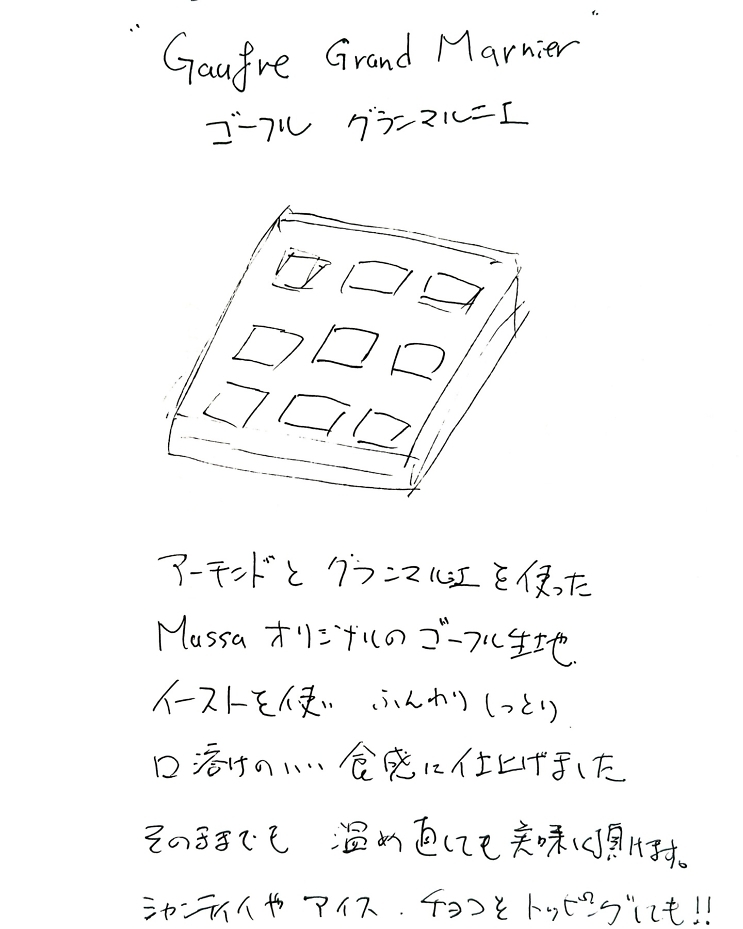 "Gaufre Grand Marnier"
ゴーフル グランマルニエ
アーモンドと グランマルニエを使った
Mussa オリジナルの ゴーフル生地
イーストを使い ふんわり しっとり
口溶けのいい 食感に仕上げました
そのままでも 温め直しても美味しく頂けます。
シャンティイや アイス. チョコとトッピングしても!!